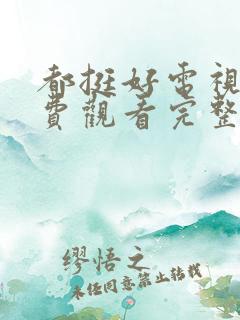 都挺好電視
費觀看完整
繆悟之
未经同意禁止转载